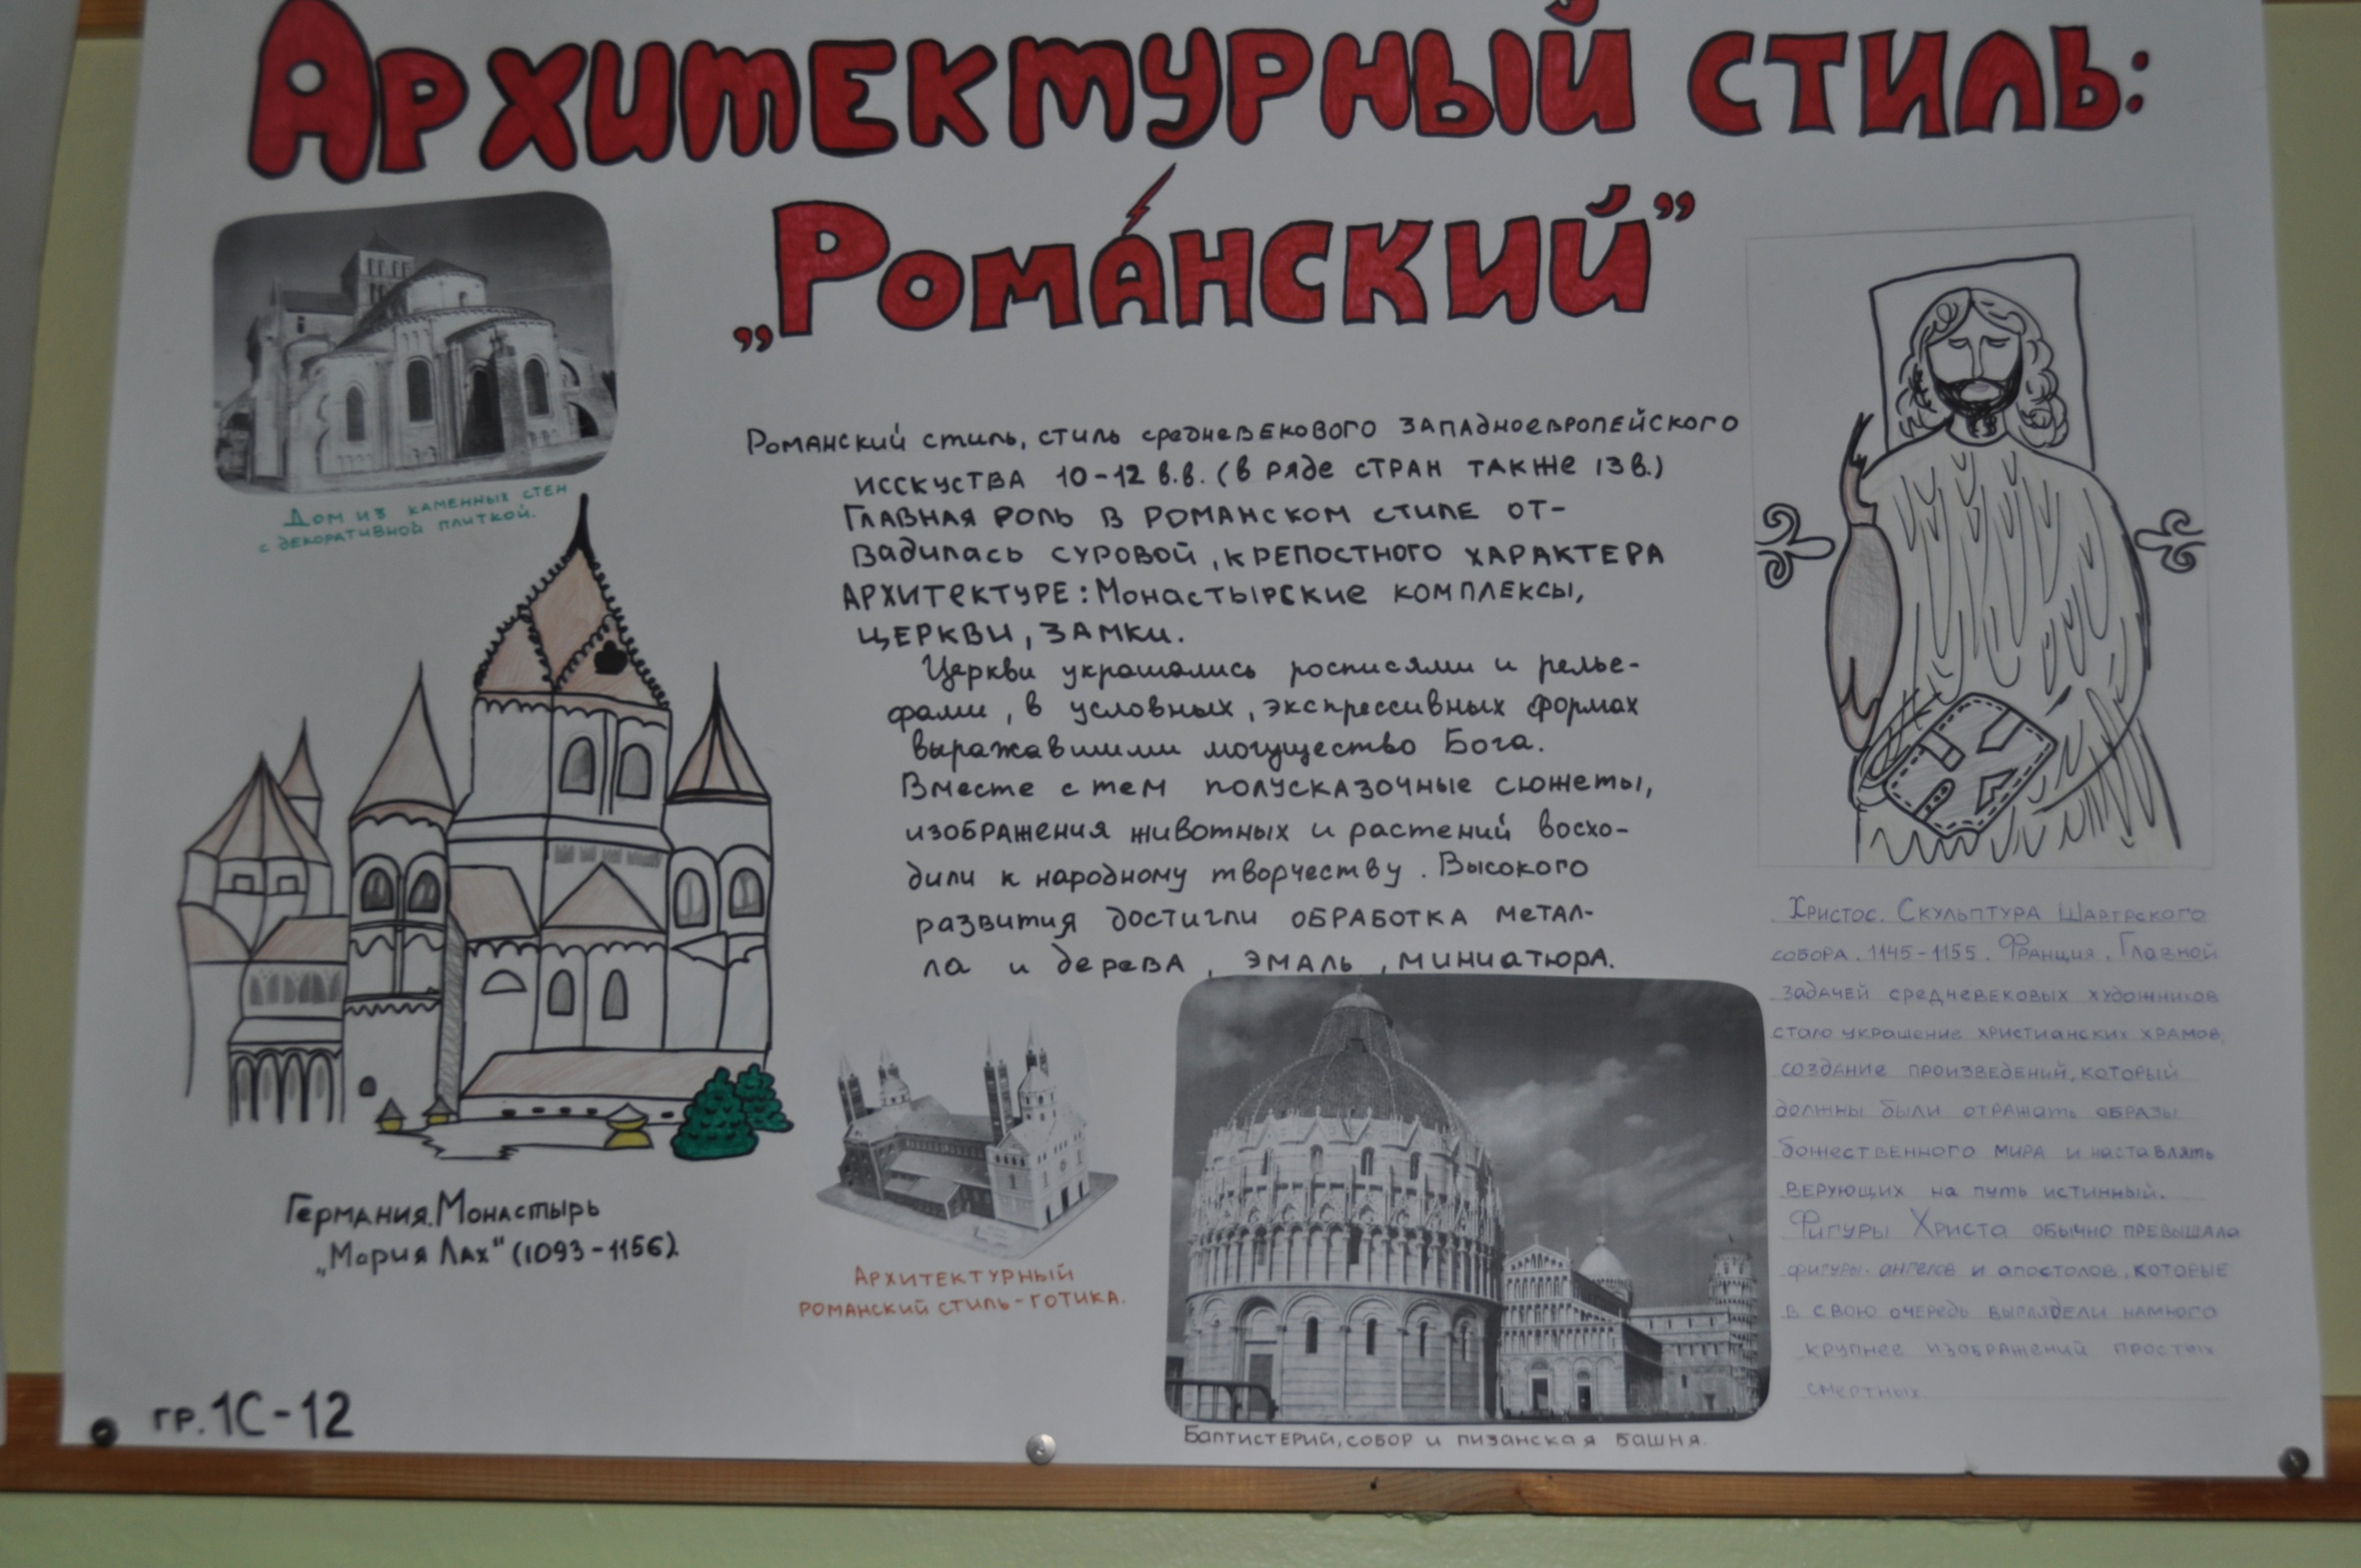 Архитектурный стиль:
„Романский”
Дом из каменных стен
с декоративной плиткой.
Романский стиль, стиль средневекового западноевропейского
исскуства 10-12 в.в. (в ряде стран также 13 в.)
Главная роль в романском стиле от-
вадилась суровой, крепостного характера
архитектуре: Монастырские комплексы,
церкви, замки.
Церкви украшались росписями и релье-
фами, в условных, экспрессивных формах
выражавшими могущество Бога.
Вместе с тем полусказочные сюжеты,
изображения животных и растений восхо-
дили к народному творчеству. Высокого
развития достигли обработка метал-
ла и дерева, эмаль, миниатюра.
Германия. Монастырь
„Мария Лах“ (1093-1156).
Архитектурный
романский стиль-готика.
Баптистерий, собор и пизанская башня.
Христос. Скульптура Шартрского
собора. 1145-1155. Франция. Главной
задачей средневековых художников
стало украшение христианских храмов,
создание произведений, который
должны были отражать образы
божественного мира и наставлять
верующих на путь истинный.
Фигуры Христа обычно превышала
фигуры ангелов и апостолов, которые
в свою очередь выглядели намного
крупнее изображений простых
смертных
гр. 1С-12